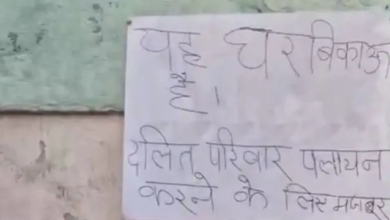 यह घर बिकाऊ
है।
दलित परिवार पलायन
करने के लिए मजबूर